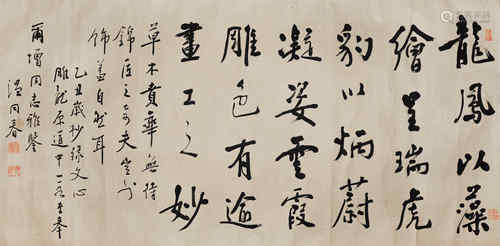 龍鳳以藻
繪呈瑞虎
豹以炳蔚
凝姿雲霞
雕色有逾
畫工之妙
草木賁華無待
錦匠之奇夫豈外
飾蓋自然耳
乙丑歲杪録文心
雕龍原道中一奉
爾同志雅鑒
溫同春